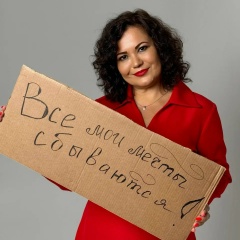 Все мои мечты
сбываются!